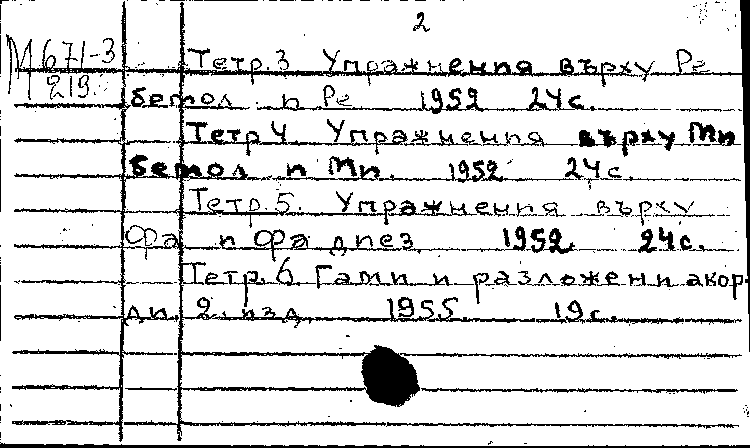 2
М 671-3
219
Тетр. 3 Упражнения върху Ре
бемол и Ре 1952 24 с.
Тетр 4. Упражнения върху Ми
бемол и Ми. 1952 24 с.
Тетр. 5. Упражнения върху
Фа и Фа диез 1952. 24 с.
Тетр. 6. Гами и разложени акор-
ди. 2. изд. 1955. 19 с.